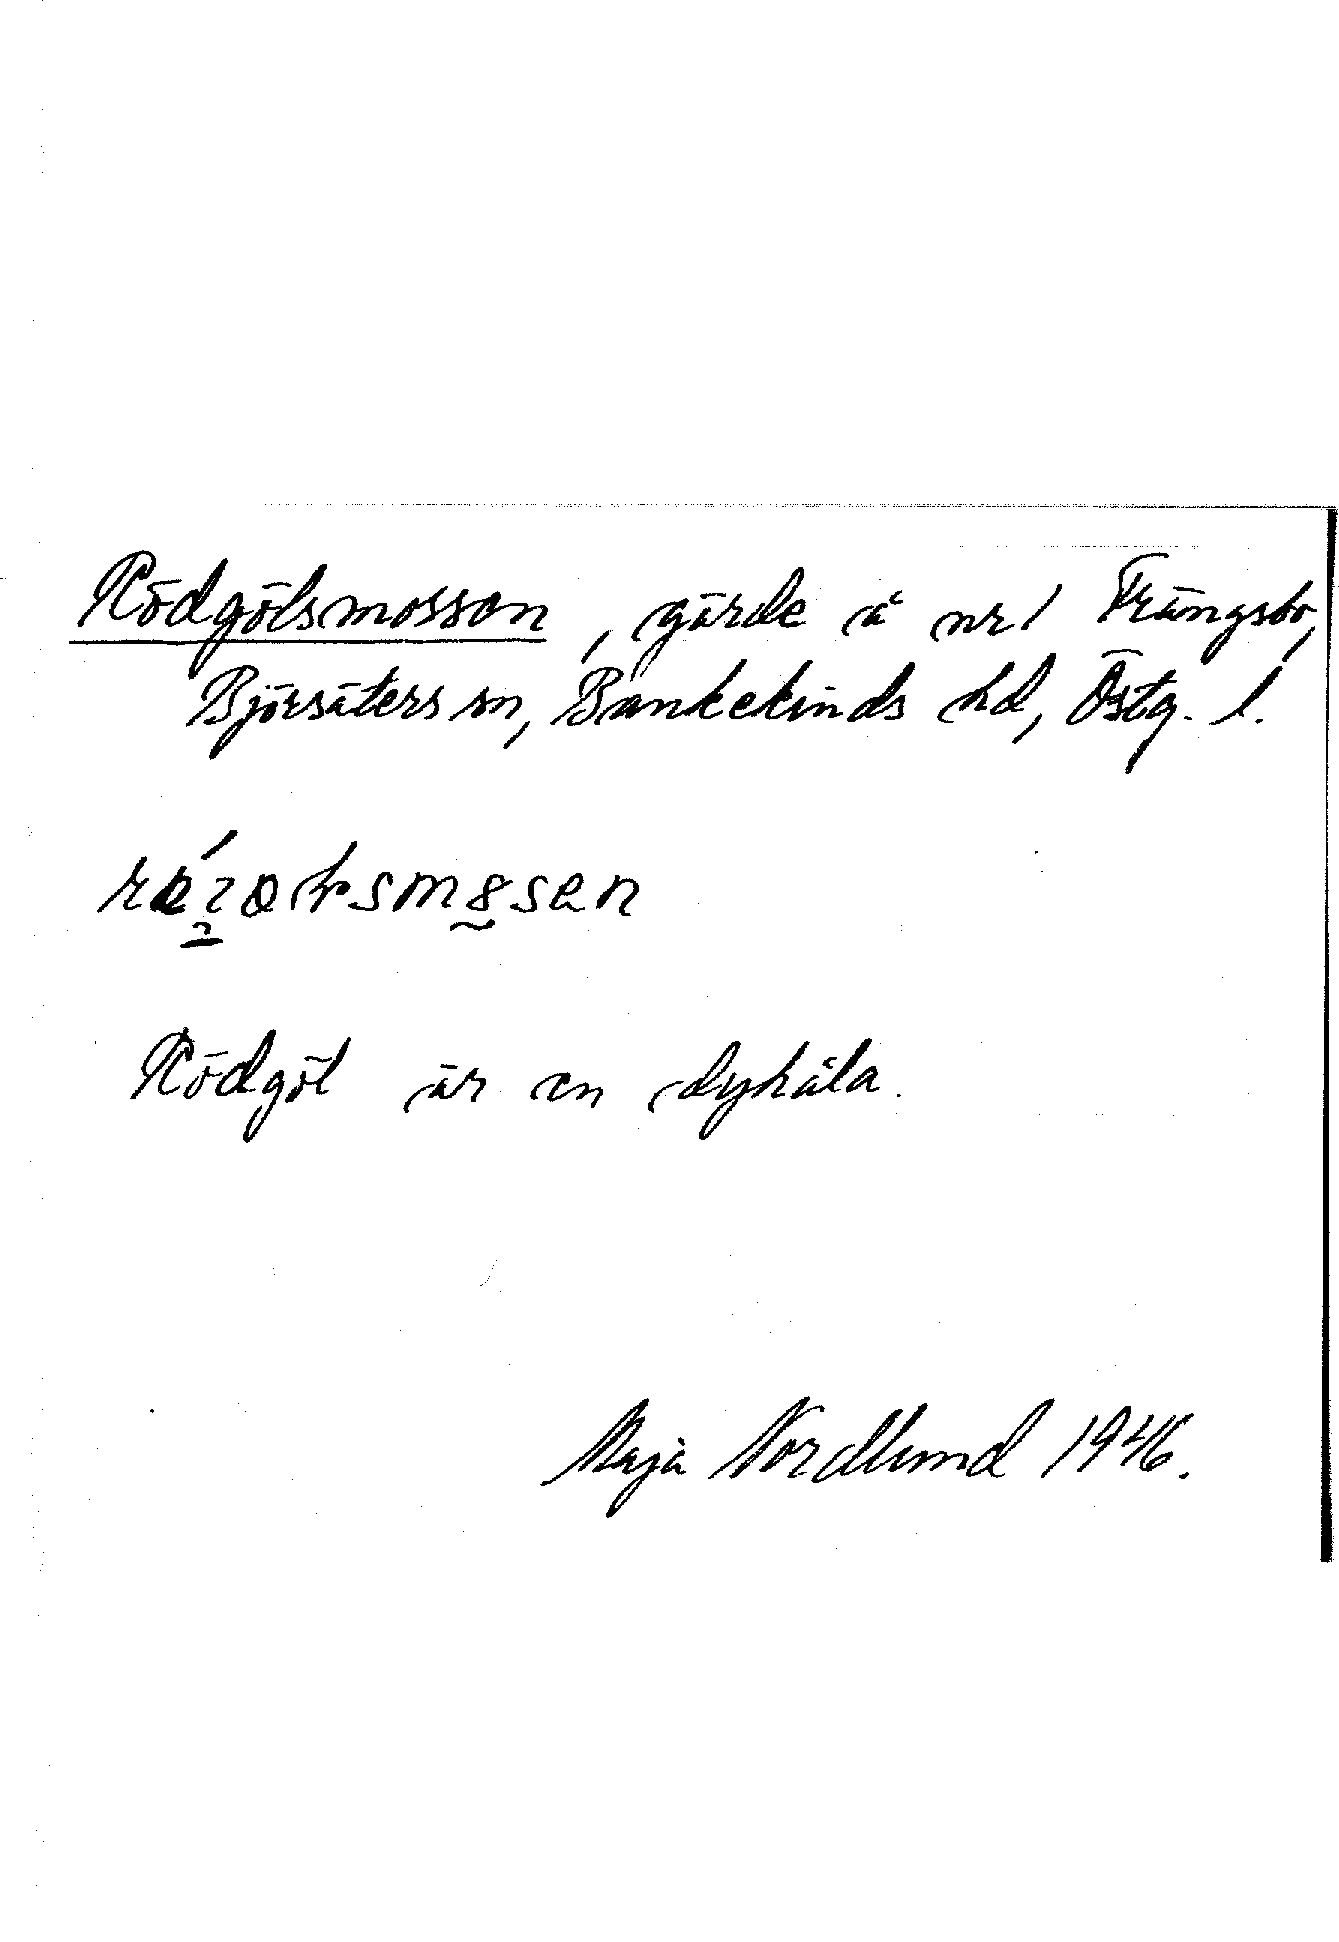 Rödgölsmossen, gärde å nr 1 Trängsbo,
Björsäters sn, Bankekinds hd, Östg. l.
Rödgöl är en dyhåla.
Maja Nordlund 1946.